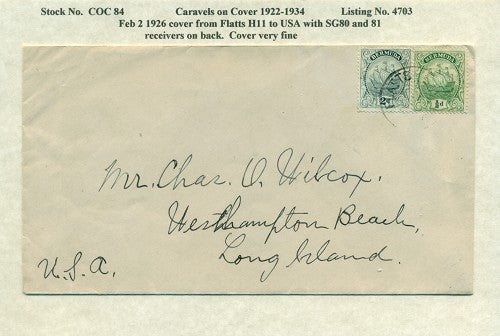 Stock No. COC 84 Caravels on Cover 1922-1934 Listing No. 4703
Feb 2 1926 cover from Flatts H11 to USA with SG80 and 81
receivers on back. Cover very fine
BERMUDA BERMUDA
2d ½d
Mr. Chas. O. Wilcox.
Westhampton Beach,
Long Island.
U.S.A.